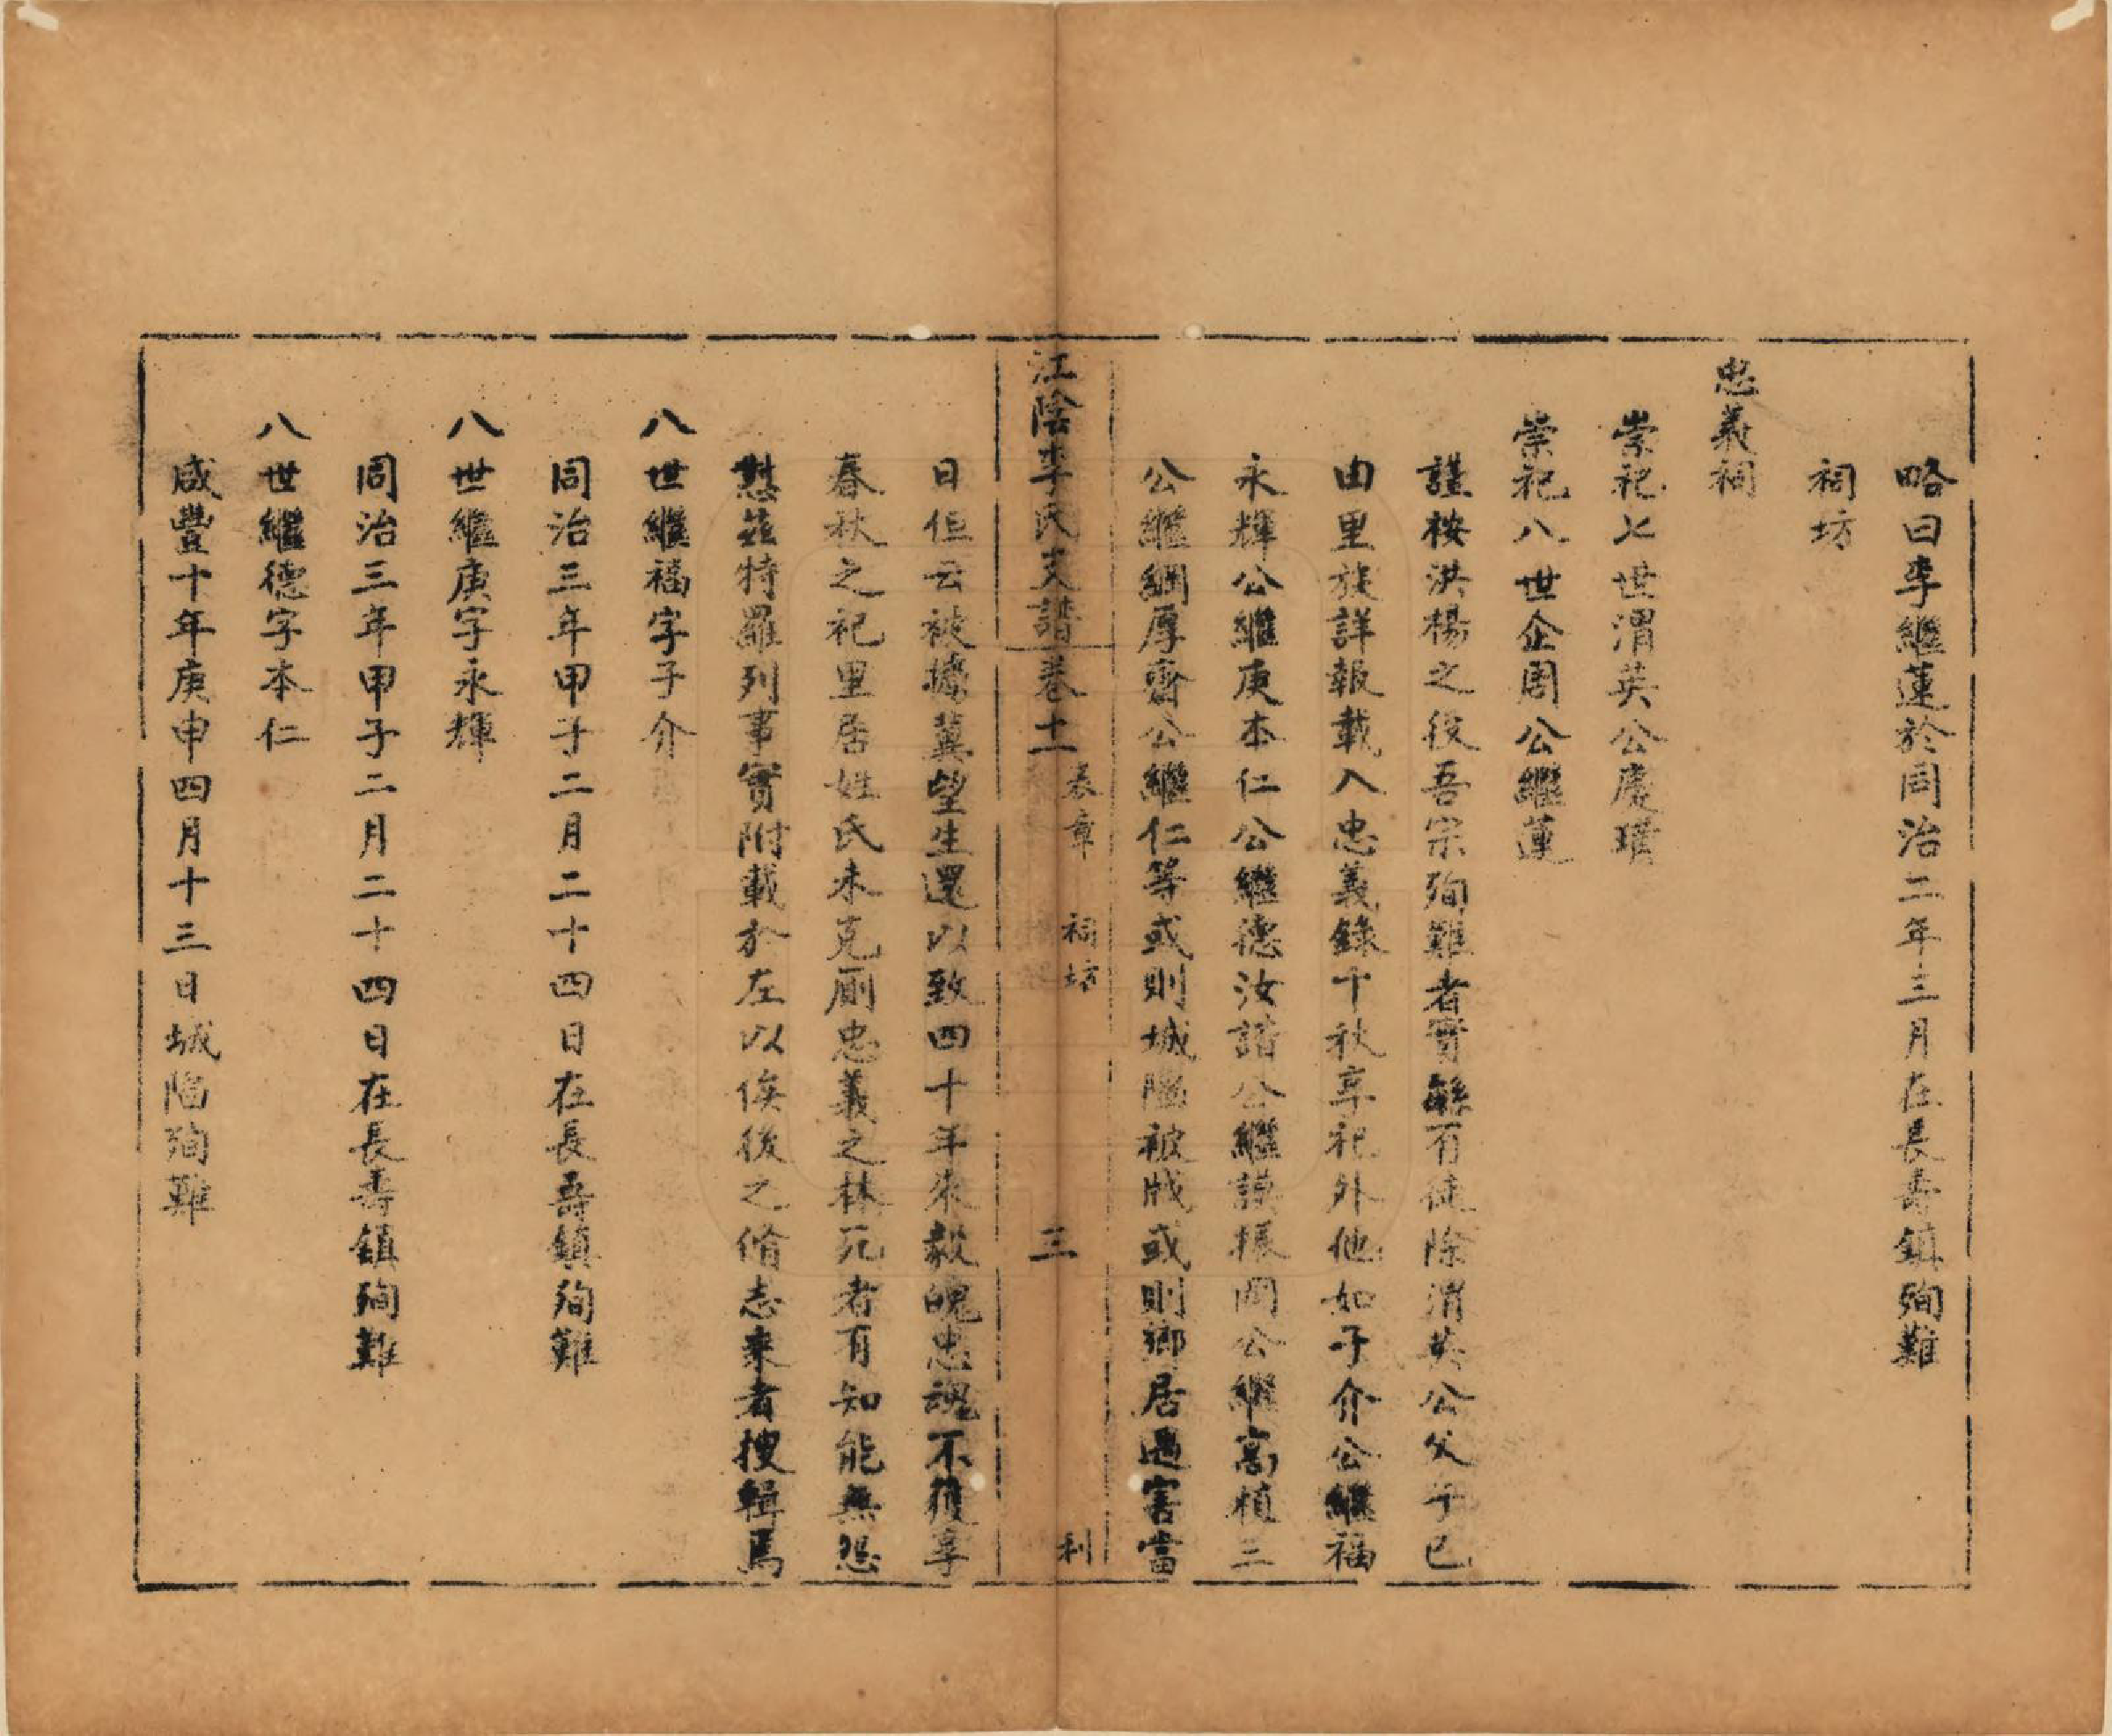 略曰李繼蓮於同治二年三月在長壽鎮殉難
祠坊
忠義祠
崇祀七世渭英公慶璜
崇祀八世企周公繼蓮
謹桉洪楊之役吾宗殉難者實繁有徒除渭英公父子已
由里族詳報載入忠義錄千秋享祀外他如子介公繼福
永輝公繼庚本仁公繼德汝諧公繼謨振岡公繼高植三
公繼綱厚齋公繼仁等或則城陷被戕或則鄉居遇害當
江陰李氏支譜卷十一 表章 祠坊 三 利
日但云被擄冀望生還以致四十年來毅魄忠魂不獲享
春秋之祀里居姓氏未克廁忠義之林死者有知能無怨
懟茲特羅列事實附載於左以俟後之脩志乘者搜輯焉
八世繼福字子介
同治三年甲子二月二十四日在長壽鎮殉難
八世繼庚字永輝
同治三年甲子二月二十四日在長壽鎮殉難
八世繼德字本仁
咸豐十年庚申四月十三日城陷殉難